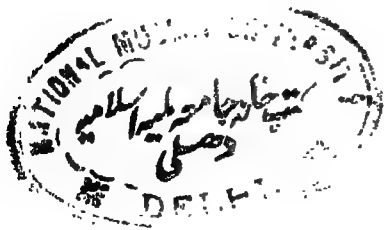 NATIONAL MUSLIM UNIVERSITY
کتبخانہ جامعہ ملیہ اسلامیہ
دہلی
DELHI